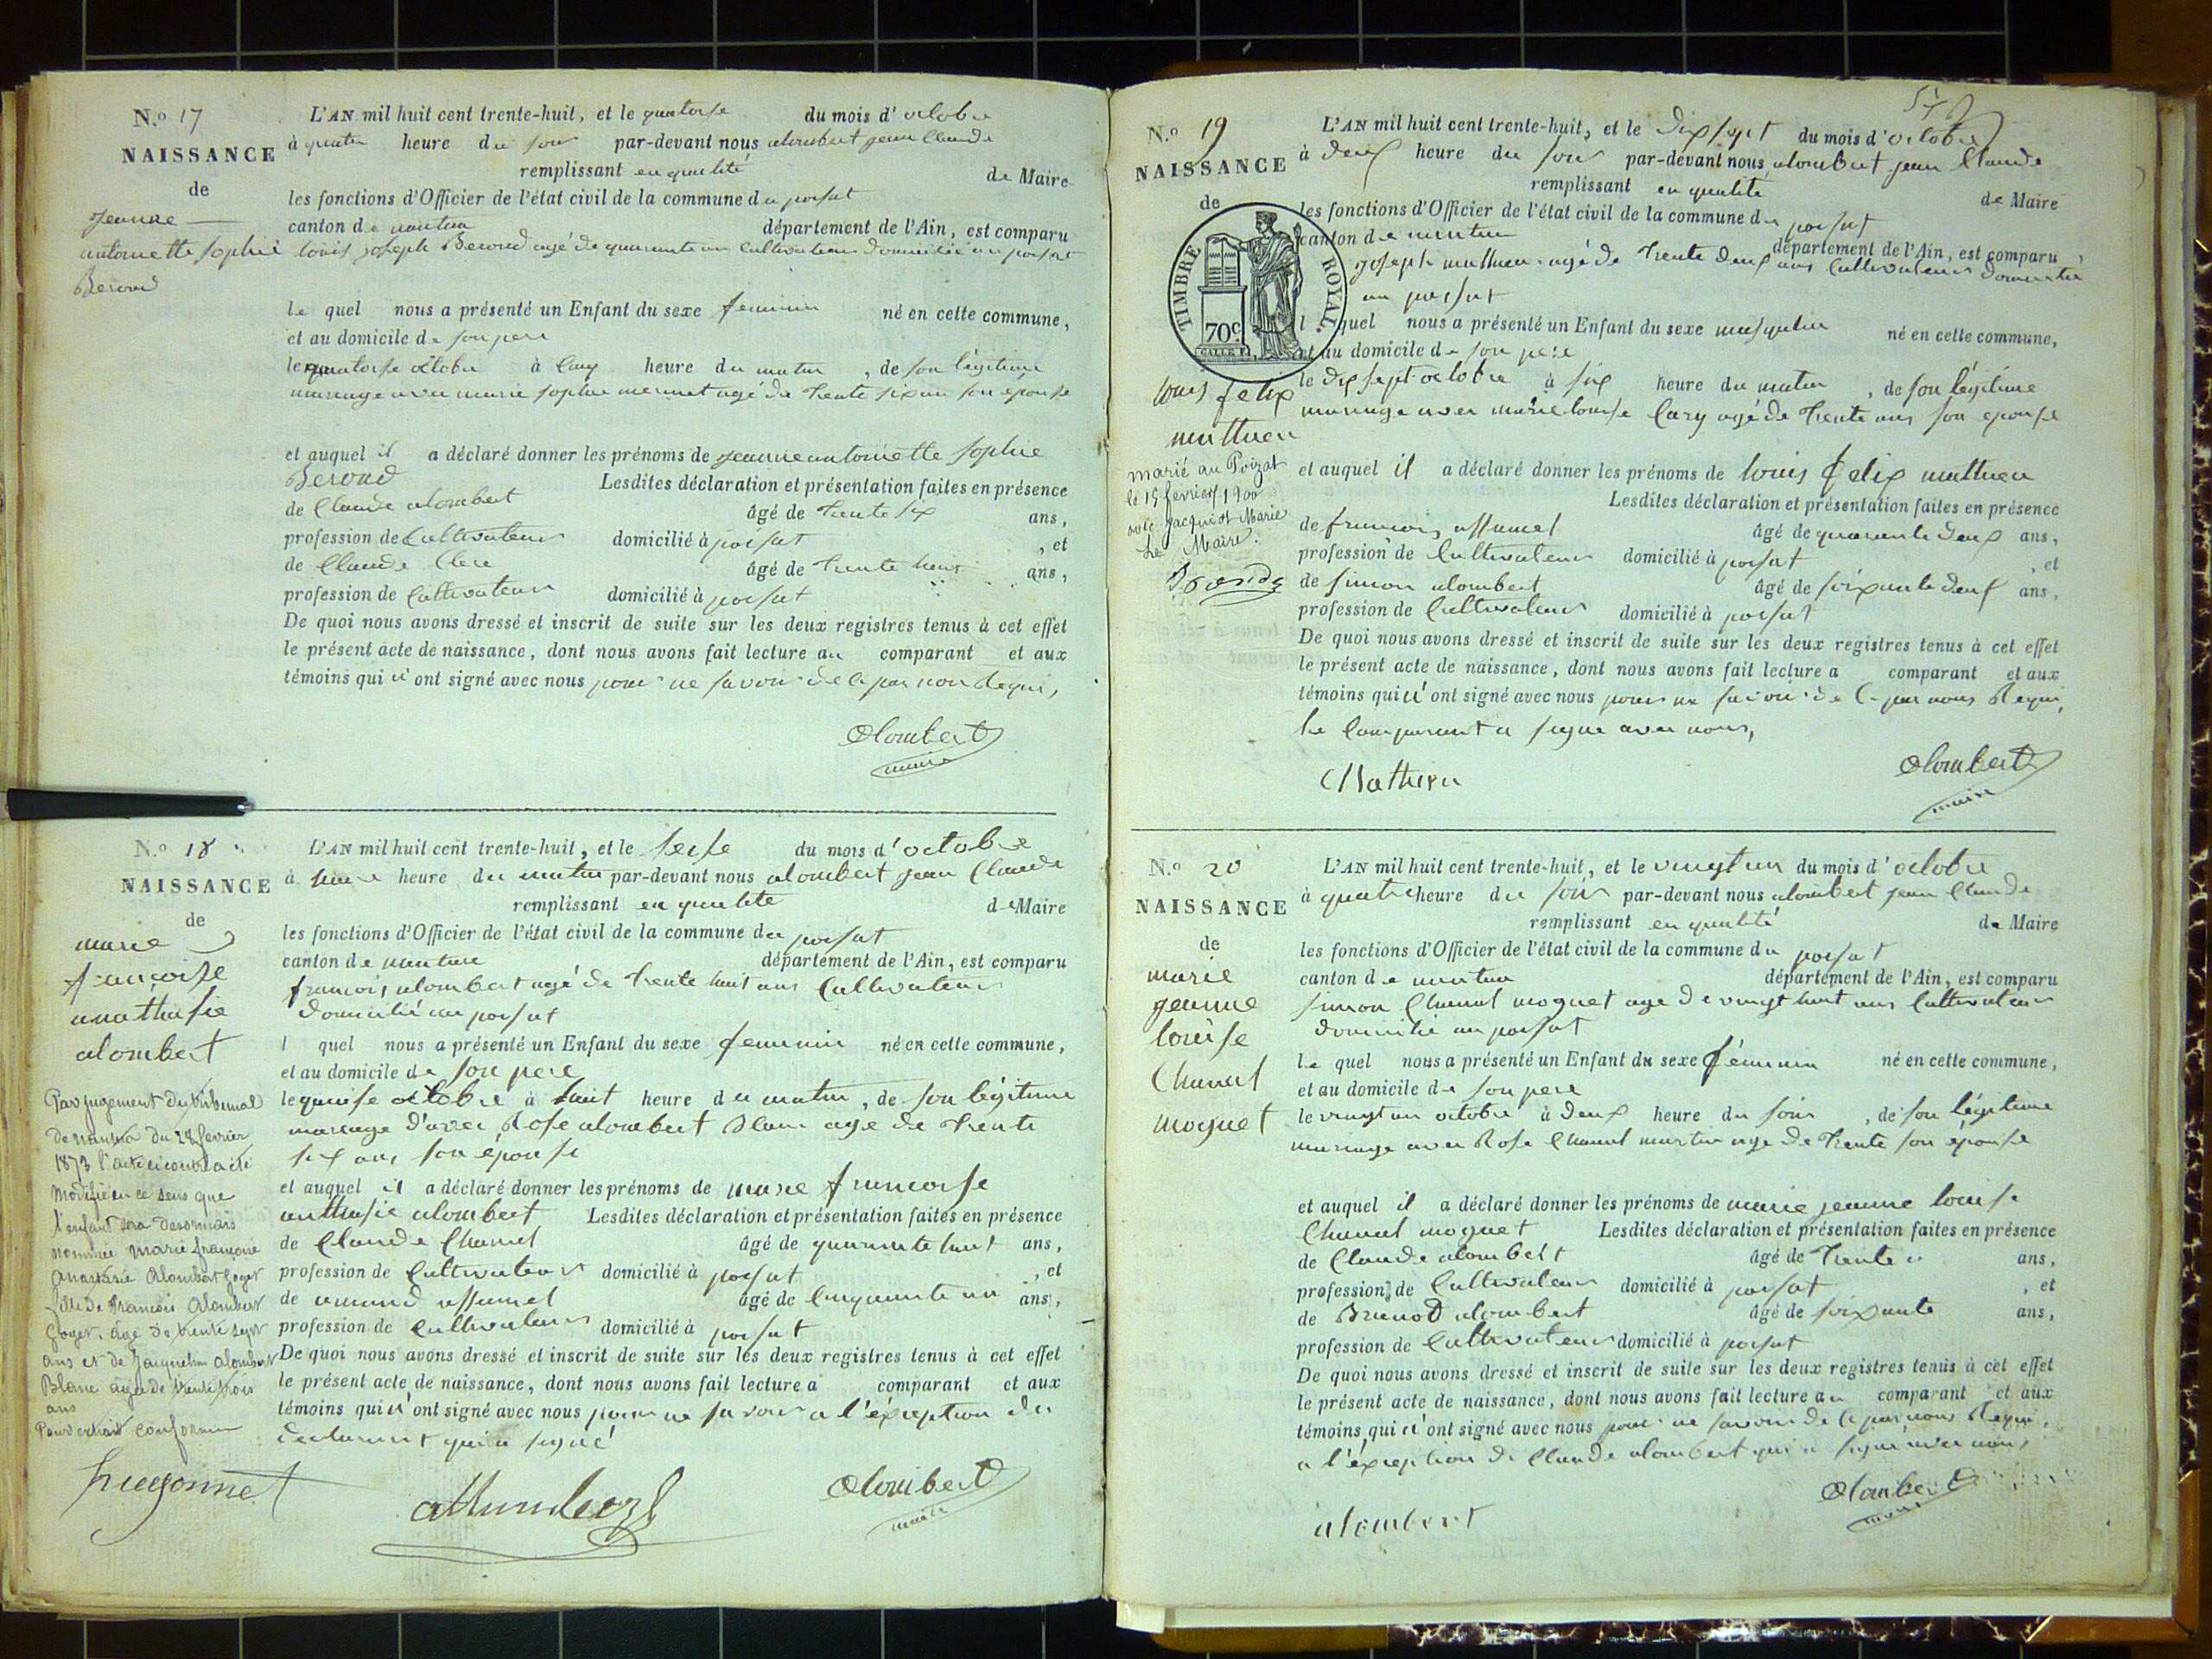 N.o 17
NAISSANCE
de
Jeanne
antoinette sophie
Beroud
L'AN mil huit cent trente-huit, et le quatorse du mois d'octobre
à quatre heure du soir par-devant nous alombert jean Claude
remplissant en qualité de Maire
les fonctions d'Officier de l'état civil de la commune du poisat
canton de nantua département de l'Ain, est comparu
louis joseph Beroud agé de quarante un Cultivateur domicilié au poisat
le quel nous a présenté un Enfant du sexe feminin né en cette commune,
et au domicile de son pere
le quatorse octobre à Cinq heure du matin, de son légitime
mariage avec marie sophie mermet agé de trente six ans son épouse
et auquel il a déclaré donner les prénoms de jeanne antoinette sophie
Beroud Lesdites déclaration et présentation faites en présence
de Claude alombert âgé de trente six ans,
profession de Cultivateur domicilié à poisat, et
de Claude Clerc âgé de trente huit ans,
profession de Cultivateur domicilié à poisat
De quoi nous avons dressé et inscrit de suite sur les deux registres tenus à cet effet
le présent acte de naissance, dont nous avons fait lecture au comparant et aux
témoins qui n'ont signé avec nous pour ne savoir de ce par nous Requi,
alombert
maire
N.o 18
NAISSANCE
de
marie
francoise
anathasie
alombert
Par jugement du tribunal
de nantua du 28 février
1873 l'acte ci contre a été
modifié en ce sens que
l'enfant sera desormais
nommée Marie françoise
Anastasie Alombert Goget
fille de François Alombert
Goget, âgé de trente sept
ans et de Jacqueline Alombert
Blanc âgée de trente trois
ans
Pour extrait conforme
L'AN mil huit cent trente-huit, et le seise du mois d'octobre
à heure du matin par-devant nous alombert jean Claude
remplissant en qualité de Maire
les fonctions d'Officier de l'état civil de la commune du poisat
canton de nantua département de l'Ain, est comparu
francois alombert agé de trente huit ans Cultivateur
domicilié au poisat
l quel nous a présenté un Enfant du sexe feminin né en cette commune,
et au domicile de son pere
le quinse octobre à huit heure du matin, de son légitime
mariage d'avec Rose alombert Blanc age de trente
six ans son épouse
et auquel il a déclaré donner les prénoms de marie francoise
anthasie alombert Lesdites déclaration et présentation faites en présence
de Claude Chanel âgé de quarante huit ans,
profession de Cultivateur domicilié à poisat, et
de amand assumel âgé de Cinquante un ans,
profession de Cultivateur domicilié à poisat
De quoi nous avons dressé et inscrit de suite sur les deux registres tenus à cet effet
le présent acte de naissance, dont nous avons fait lecture a comparant et aux
témoins qui n'ont signé avec nous pour ne savoir a l'éxception du
declarant qui a signé
alombert
maire
N.o 19
NAISSANCE
de
TIMBRE ROYAL.
70c
louis felix
mathieu
marié au Poizat
le 15 février 1900
avec Jacquiot Marie
Le Maire.
L'AN mil huit cent trente-huit, et le dix sept du mois d'octobre
à deux heure du soir par-devant nous alombert jean Claude
remplissant en qualité de Maire
les fonctions d'Officier de l'état civil de la commune du poisat
canton de nantua département de l'Ain, est comparu
joseph mathieu agé de trente deux ans Cultivateur domicilié
au poisat
l quel nous a présenté un Enfant du sexe masqulin né en cette commune,
et au domicile de son pere
le dix sept octobre à six heure du matin, de son légitime
mariage avec marie louise Cary agé de trente ans son epouse
et auquel il a déclaré donner les prénoms de louis felix mathieu
Lesdites déclaration et présentation faites en présence
de francois assumel âgé de quarante deux ans,
profession de Cultivateur domicilié à poisat, et
de simon alombert âgé de soixante deux ans,
profession de Cultivateur domicilié à poisat
De quoi nous avons dressé et inscrit de suite sur les deux registres tenus à cet effet
le présent acte de naissance, dont nous avons fait lecture a comparant et aux
témoins qui n'ont signé avec nous pour ne savoir de Ce par nous Requi,
le Comparant a signe avec nous,
Mathieu
alombert
maire
N.o 20
NAISSANCE
de
marie
jeanne
louise
Chanel
moguet
L'AN mil huit cent trente-huit, et le vingt un du mois d'octobre
à quatre heure du soir par-devant nous alombert jean Claude
remplissant en qualité de Maire
les fonctions d'Officier de l'état civil de la commune du poisat
canton de nantua département de l'Ain, est comparu
simon Chanel moguet age de vingt huit ans Cultivateur
domicilié au poisat
le quel nous a présenté un Enfant du sexe féminin né en cette commune,
et au domicile de son pere
le vingt un octobre à deux heure du soir, de son légitime
mariage avec Rose Chanel martin age de trente son épouse
et auquel il a déclaré donner les prénoms de marie jeanne louise
Chanel moguet Lesdites déclaration et présentation faites en présence
de Claude alombert âgé de trente ans,
profession de Cultivateur domicilié à poisat, et
de Brunod alombert âgé de soixante ans,
profession de Cultivateur domicilié à poisat
De quoi nous avons dressé et inscrit de suite sur les deux registres tenus à cet effet
le présent acte de naissance, dont nous avons fait lecture au comparant et aux
témoins qui n'ont signé avec nous pour ne savoir de Ce par nous Requi,
a l'éxception de Claude alombert qui a signé avec nous,
alombert
alombert
maire